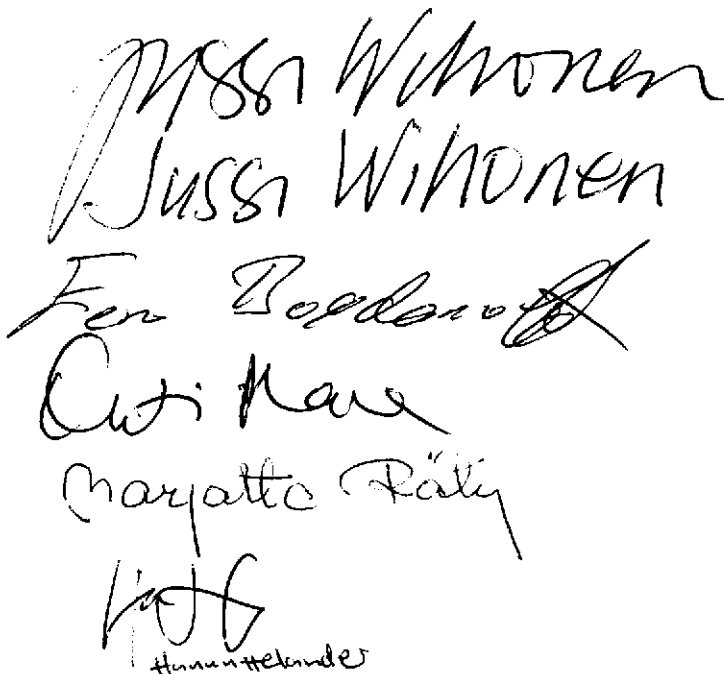 Jussi Wihonen
Jussi Wihonen
Eero Bogdanoff
Outi Mara
Marjatta Räty
Hannu Helander